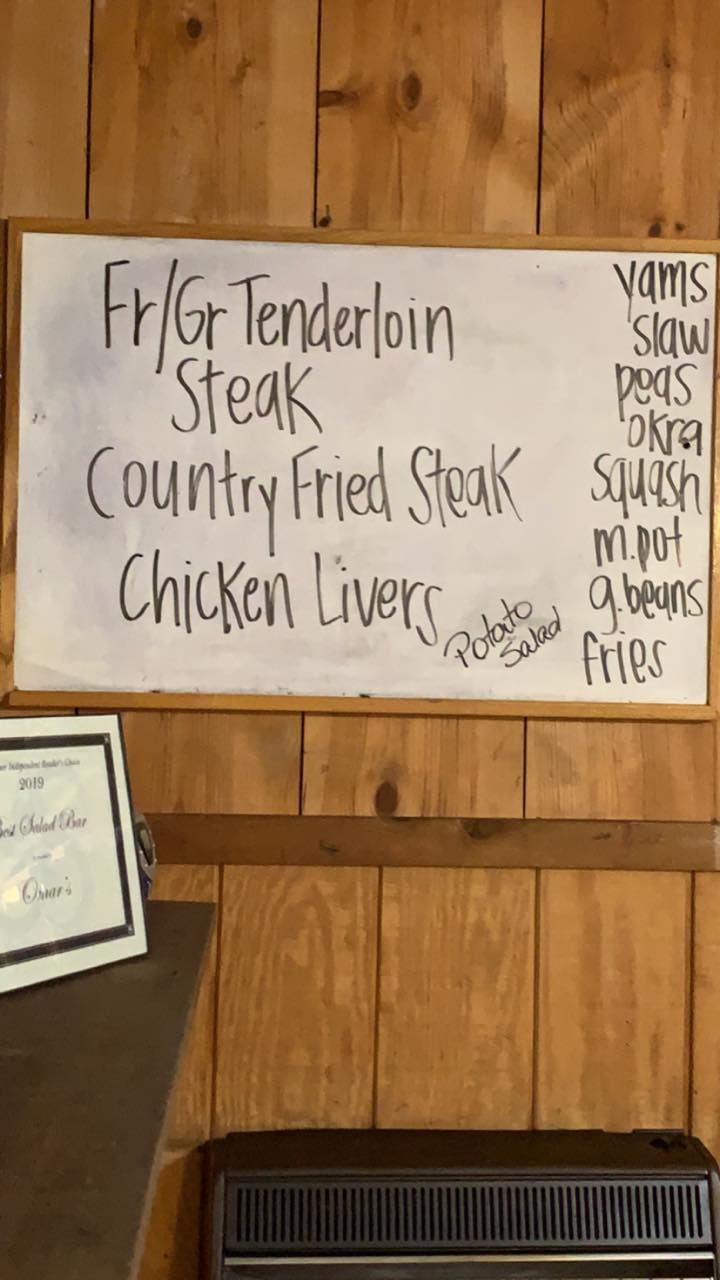 Fr/Gr Tenderloin
Steak
Country Fried Steak
Chicken Livers
Potato
Salad
yams
slaw
peas
okra
squash
m.pot
g.beans
fries
Independent Reader's Choice
2019
Best Salad Bar
Omar's